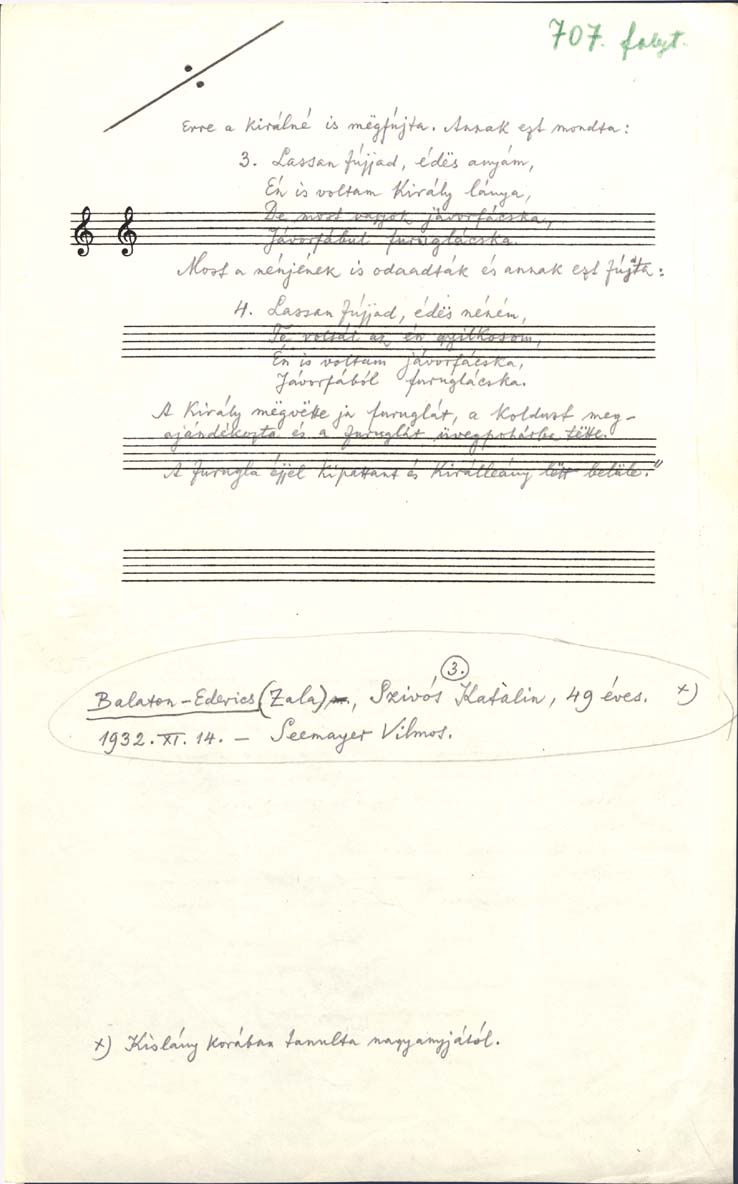 707. folyt.
Erre a királné is mëgfújta. Annak ezt mondta:
3. Lassan fújjad, édës anyám,
Én is voltam király lánya,
De most vagyok jávorfácska,
Jávorfábul furuglácska.
Most a nénjének is odaadták és annak ezt fújta:
4. Lassan fújjad, édës néném,
Te voltál az én gyilkosom,
Én is voltam jávorfácska,
Jávorfából furuglácska.
A király mëgvëtte ja furuglát, a koldust meg-
ajándékozta és a furuglát üvegpohárba tëtte.
A furugla éjjel kipattant és királleány lëtt belüle."
3.
Balaton-Ederics (Zala), Szivós Katalin, 49 éves. x)
1932. XI. 14. – Seemayer Vilmos.
x) Kislány korában tanulta nagyanyjától.